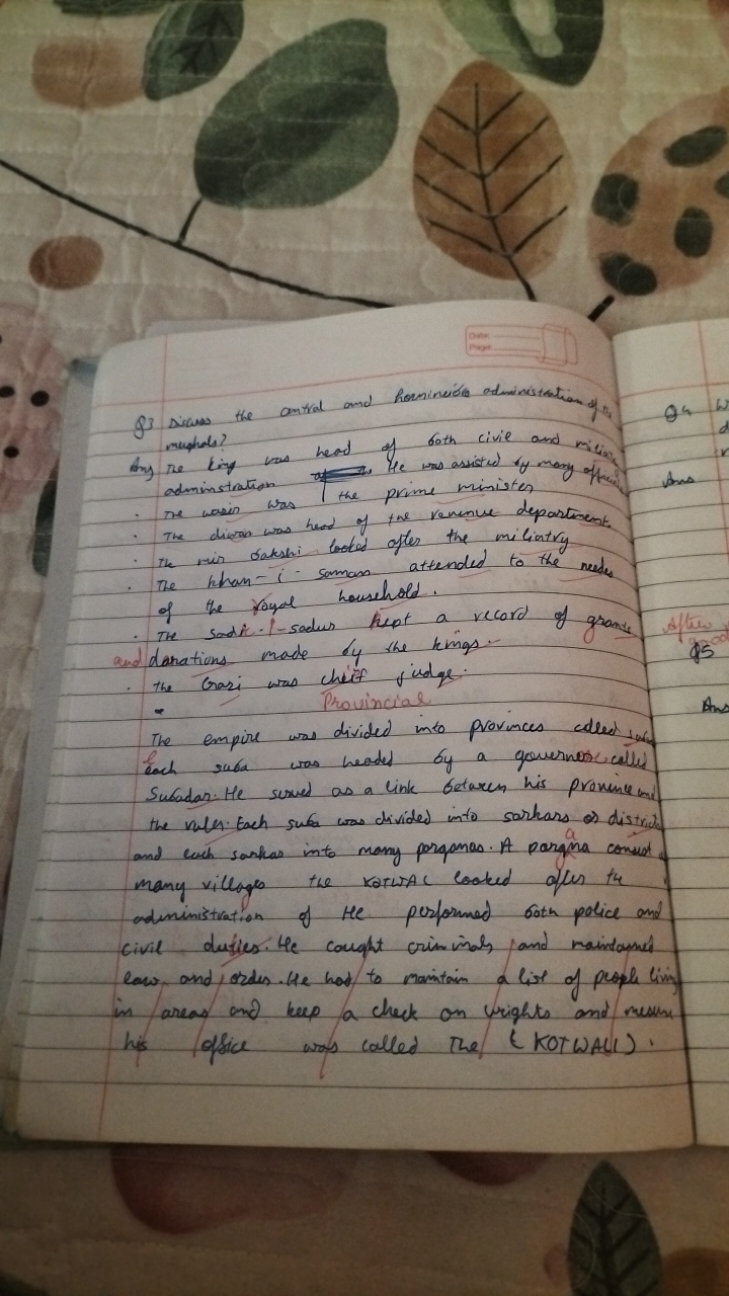 Date:
Page:
Q3 Discuss the central and administration of the
mughals?
Ans The king was head of both civil and
adminstration He was assisted by many
• The wasir was the prime minister
• The diwan was head of the revenue department.
• The mir bakshi looked after the miliatry
• The khan-i-saman attended to the needes
of the royal household.
• The sadr-i-sadur kept a record of grants
and donations made by the kings.
• the Qazi was cheif judge.
Provincial
The empire was divided into provinces called
Each suba was headed by a governor called
Subadar. He served as a link between his province and
the ruler. Each suba was divided into sarkars or
and each sarkar into many parganas. A pargana
many villages the KOTWAL looked after the
administration of He performed both police and
civil duties. He caught criminals and maintained
law and order. He had to maintain a list of people
in areas and keep a check on wrights and
his office was called The (KOTWALI).
Q4
Ans
After
good
Q5
Ans